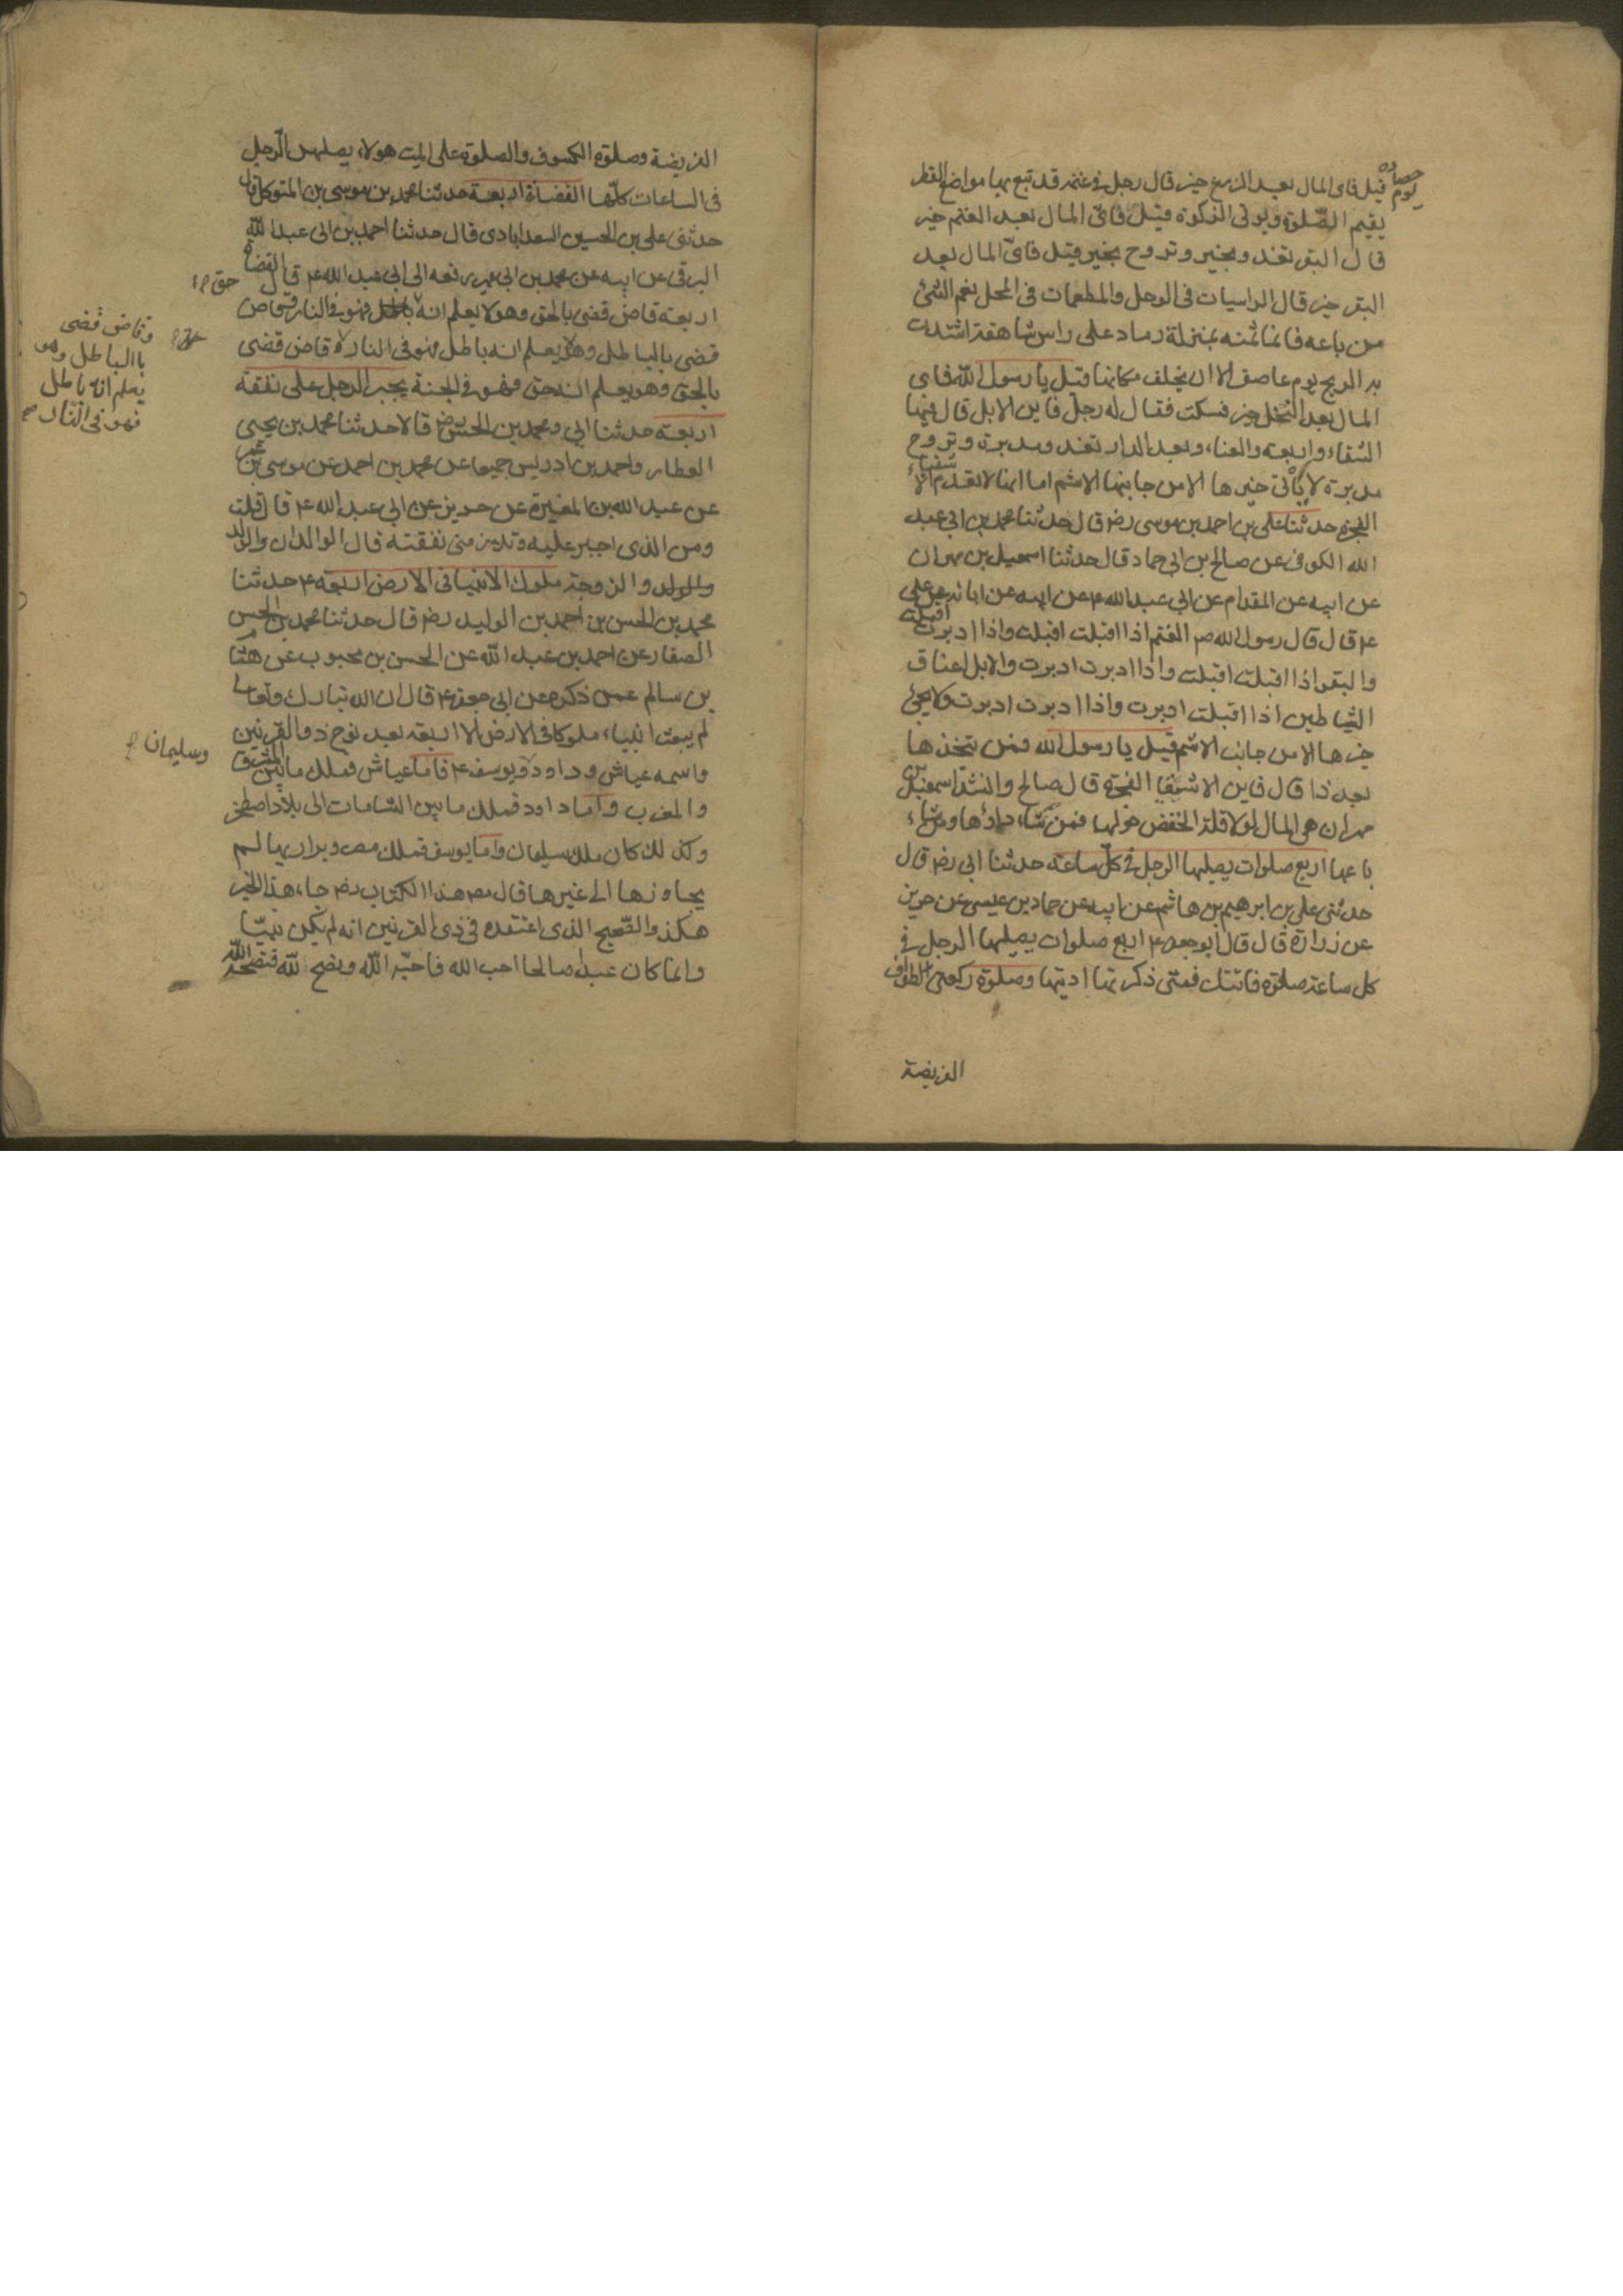 حصاده
يوم
قيل فاى المال بعد الزرع خير قال رجل فى غنمه قد تبع بها مواضع القطر
يقيم الصّلوة ويوتى الزكوة قيل فاىّ المال بعد الغنم خير
قال البقر تغدو بخير وتروح بخير قيل فاىّ المال بعد
البقر خير قال الراسيات فى الوحل والمطعمات فى المحل نعم الشئ
من باعه فانما ثمنه بمنزلة رماد على راس شاهقة اشتدت
به الريح يوم عاصف الا ان يخلف مكانها قيل يا رسول اللّه فاى
المال بعد النخل خير فسكت فقال له رجل فاين الابل قال فيها
الشقاء واربعه والعناء وبعد الدار تغدو مدبرة وتروح
مدبرة لا يأتى خيرها الا من جانبها الاشئم اما انها لا تعدم الا شقياء
الفجرة حدثنا على بن احمد بن موسى رضه قال حدثنا محمد بن ابى عبد
الله الكوفى عن صالح بن ابى حماد قال حدثنا اسمعيل بن مهران
عن ابيه عن المقدام عن ابى عبد الله ع عن ابيه عن ابائه عن على
ع قال قال رسول الله ص الغنم اذا اقبلت اقبلت واذا ادبرت اقبلت
والبقر اذا اقبلت اقبلت واذا ادبرت ادبرت والابل اعناق
الشياطين اذا اقبلت ادبرت واذا ادبرت ادبرت ولا يجئ
خيرها الا من جانب الاشئم قيل يا رسول الله فمن يتخذها
بعد ذا قال فاين الاشقيا الفجرة قال صالح وانشد اسمعيل بن
مهران هى المال لولا قلة الخفض حولها فمن شاء داراها ومن شاء
باعها اربع صلوات يصليها الرجل فى كلّ ساعة حدثنا ابى رضه قال
حدثنى على بن ابرهيم بن هاشم عن ابيه عن حماد بن عيسى عن حريز
عن زرارة قال قال ابو جعفر ع اربع صلوات يصليها الرجل فى
كل ساعة صلوة فاتتك فمتى ذكرتها اديتها وصلوة ركعتى الطواف
الفريضة
الفريضة وصلوة الكسوف والصلوة على الميت هولاء يصليهن الرّجل
فى الساعات كلّها القضاة اربعة حدثنا محمد بن موسى بن المتوكل قال
حدثنى على بن الحسين السعدابادى قال حدثنا احمد بن ابى عبد اللّه
البرقى عن ابيه عن محمد بن ابى عمير رفعه الى ابى عبد الله ع قال القضاة
اربعة قاض قضى بالحق وهو لا يعلم انه باطل فهو فى النار وقاض
حق
قضى بالباطل وهو لا يعلم انه باطل فهو فى النار قاض قضى
وقاض قضى
بالباطل وهو
يعلم انه باطل
فهو فى النار صح
بالحق وهو يعلم انه حق فهو فى الجنة يجبر الرجل على نفقة
اربعة حدثنا ابى ومحمد بن الحسن رض قالا حدثنا محمد بن يحيى
العطار واحمد بن ادريس جميعا عن محمد بن احمد عن موسى بن عمر
عن عبد الله بن المغيرة عن حريز عن ابى عبد الله ع قال قلت
ومن الذى اجبر عليه وتلزمنى نفقته قال الوالدان والولد
والزوجة ملوك الانبيا فى الارض اربعة ع حدثنا
محمد بن الحسن بن احمد بن الوليد رضه قال حدثنا محمد بن الحسن
الصفار عن احمد بن عبد اللّه عن الحسن بن محبوب عن هشام
بن سالم عمن ذكره عن ابى جعفر ع قال ان الله تبارك وتعالى
لم يبعث انبياء ملوكا فى الارض الا اربعة بعد نوح ذو القرنين
واسمه عياش وداود ويوسف ع فاما عياش فملك ما بين المشرق
وسليمان
والمغرب واما داود فملك ما بين الشامات الى بلاد اصطخر
وكذلك كان ملك سليمان واما يوسف فملك مصر وبراريها لم
يجاوزها الى غيرها قال مص هذا الكتاب رضه جاء هذا الخبر
هكذا والصّحيح الذى اعتقده فى ذى القرنين انه لم يكن نبيّا
وانما كان عبدا صالحا احب الله فاحبّه اللّه ونصح للّه فنصحه اللّه